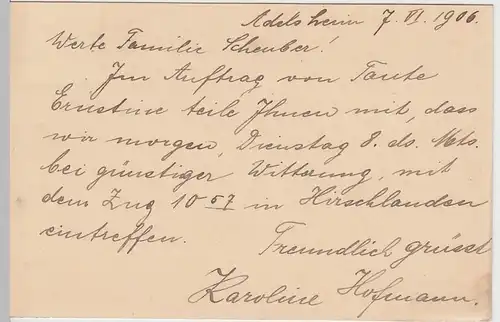 Adelsheim 7. VI. 1906.
Werte Familie Scheuber!
Im Auftrag von Tante
Ernstine teile Ihnen mit, dass
wir morgen, Dienstag 8. ds. Mts.
bei günstiger Witterung, mit
dem Zug 10 57 in Hirschlanden
eintreffen.
Freundlich grüsst
Karoline Hofmann.